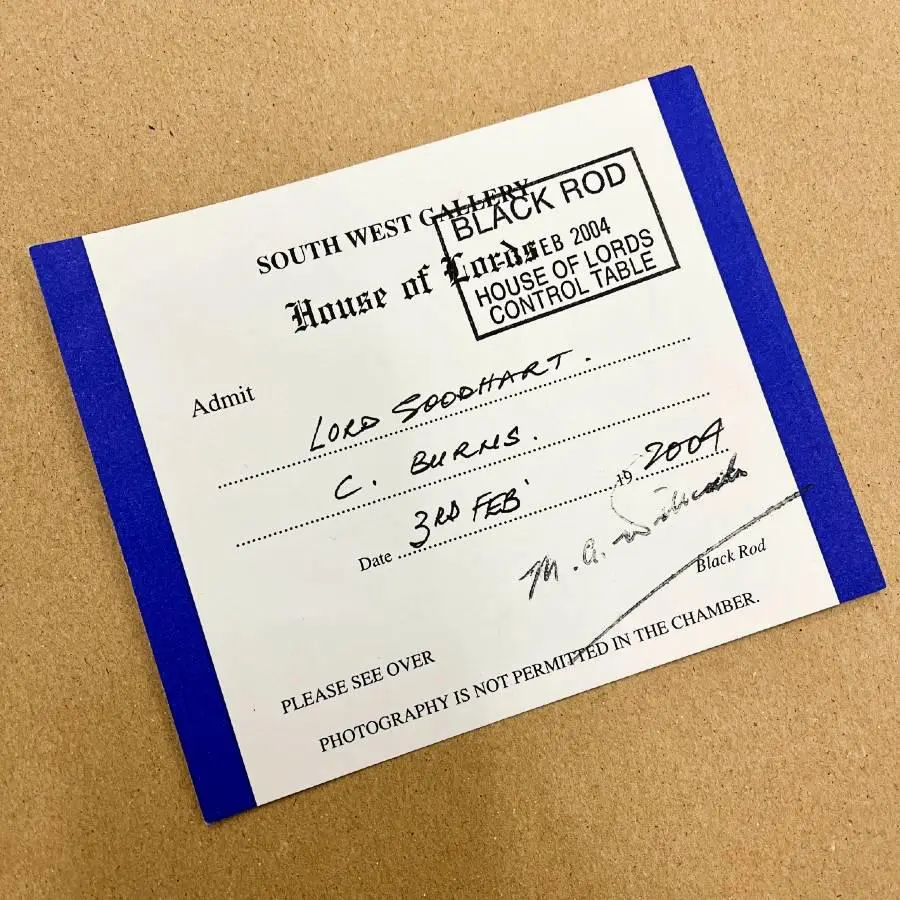 SOUTH WEST GALLERY
House of Lords
BLACK ROD
FEB 2004
HOUSE OF LORDS
CONTROL TABLE
Admit
LORD GOODHART.
C. BURNS.
Date 3RD FEB' 19 2004
M. A. Willcocks
Black Rod
PLEASE SEE OVER
PHOTOGRAPHY IS NOT PERMITTED IN THE CHAMBER.